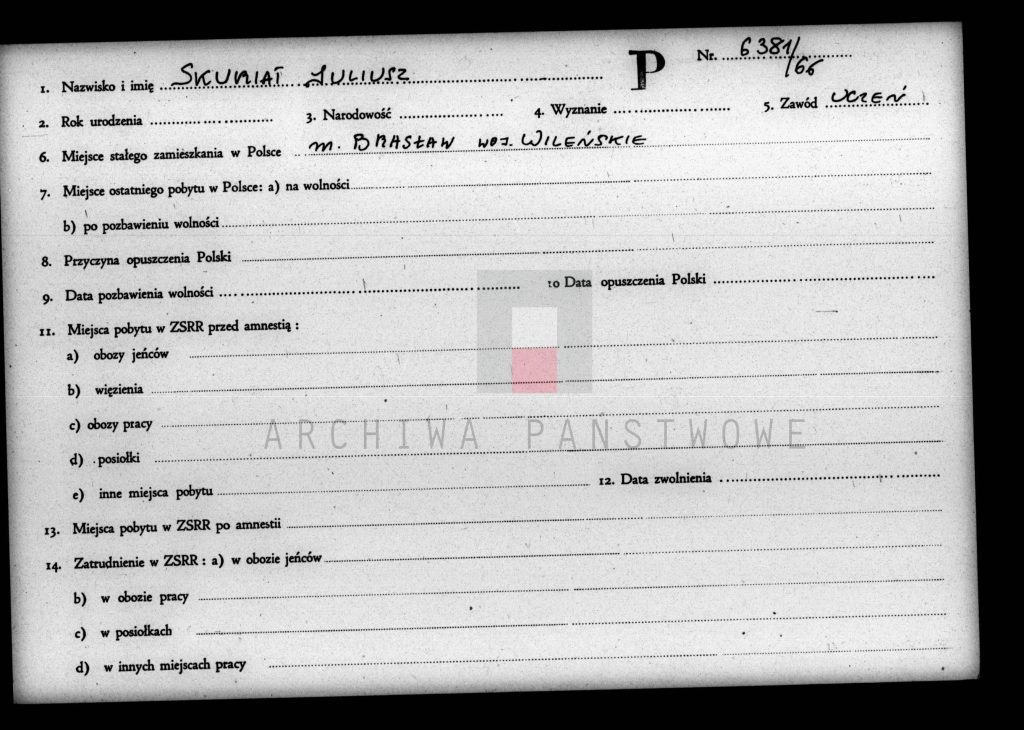 1. Nazwisko i imię SKURIAT JULIUSZ P Nr. 6381/66
2. Rok urodzenia 3. Narodowość 4. Wyznanie 5. Zawód UCZEŃ
6. Miejsce stałego zamieszkania w Polsce m. BRASŁAW woj. WILEŃSKIE
7. Miejsce ostatniego pobytu w Polsce: a) na wolności
b) po pozbawieniu wolności
8. Przyczyna opuszczenia Polski
9. Data pozbawienia wolności 10 Data opuszczenia Polski
11. Miejsca pobytu w ZSRR przed amnestią :
a) obozy jeńców
b) więzienia
c) obozy pracy
ARCHIWA PAŃSTWOWE
d) posiołki
e) inne miejsca pobytu 12. Data zwolnienia
13. Miejsca pobytu w ZSRR po amnestii
14. Zatrudnienie w ZSRR : a) w obozie jeńców
b) w obozie pracy
c) w posiołkach
d) w innych miejscach pracy